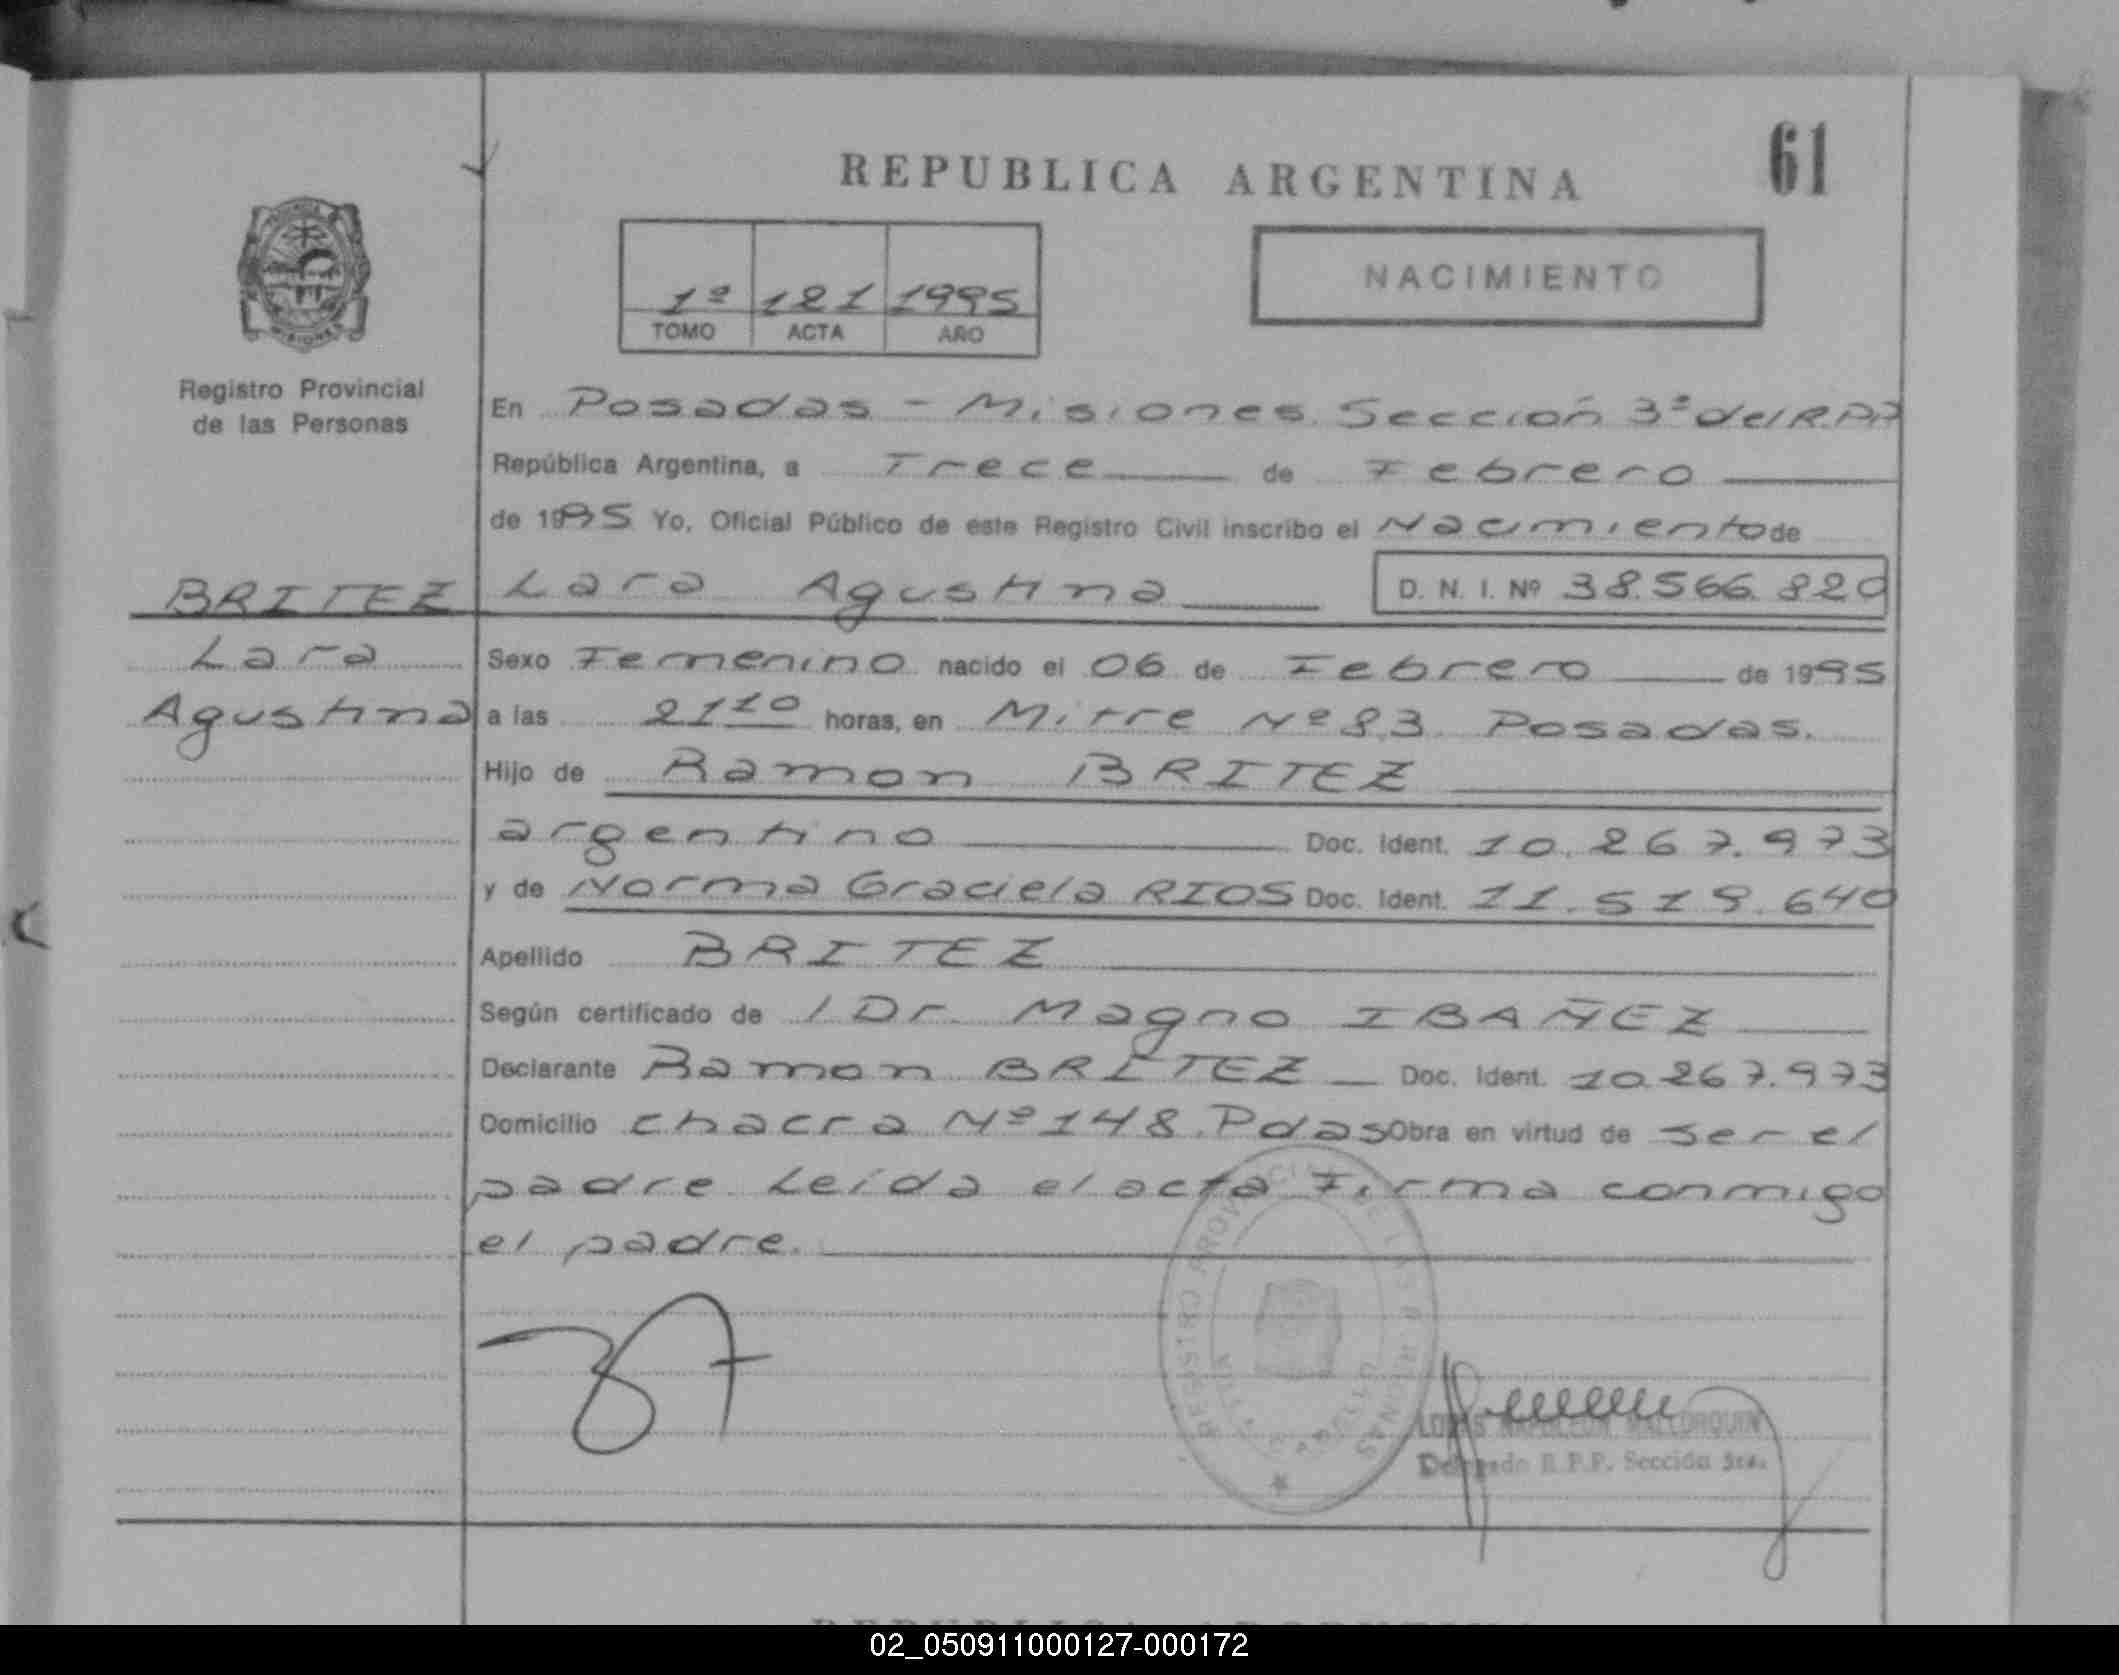 61
REPUBLICA ARGENTINA
1º 121 1995
TOMO ACTA AÑO
NACIMIENTO
Registro Provincial
de las Personas
En Posadas - Misiones. Sección 3ª del R.P.P
República Argentina, a Trece de Febrero
de 1995 Yo, Oficial Público de este Registro Civil inscribo el Nacimiento de
BRITEZ Lara Agustina D. N. I. Nº 38.566.820
Lara
Agustina
Sexo Femenino nacido el 06 de Febrero de 1995
a las 21 10 horas, en Mitre Nº 83 Posadas.
Hijo de Ramon BRITEZ
argentino Doc. Ident. 10.267.973
y de Norma Graciela RIOS Doc. Ident. 11.519.640
Apellido BRITEZ
Según certificado de l Dr. Magno IBAÑEZ
Declarante Ramon BRITEZ Doc. Ident. 10.267.973
Domicilio chacra Nº 148 Pdas Obra en virtud de ser el
padre Leída el acta Firma conmigo
el padre.
REGISTRO PROVINCIAL DE LAS PERSONAS
NAPOLEON MALLORQUIN
Delegado R.P.P. Sección 3ra.
02_050911000127-000172